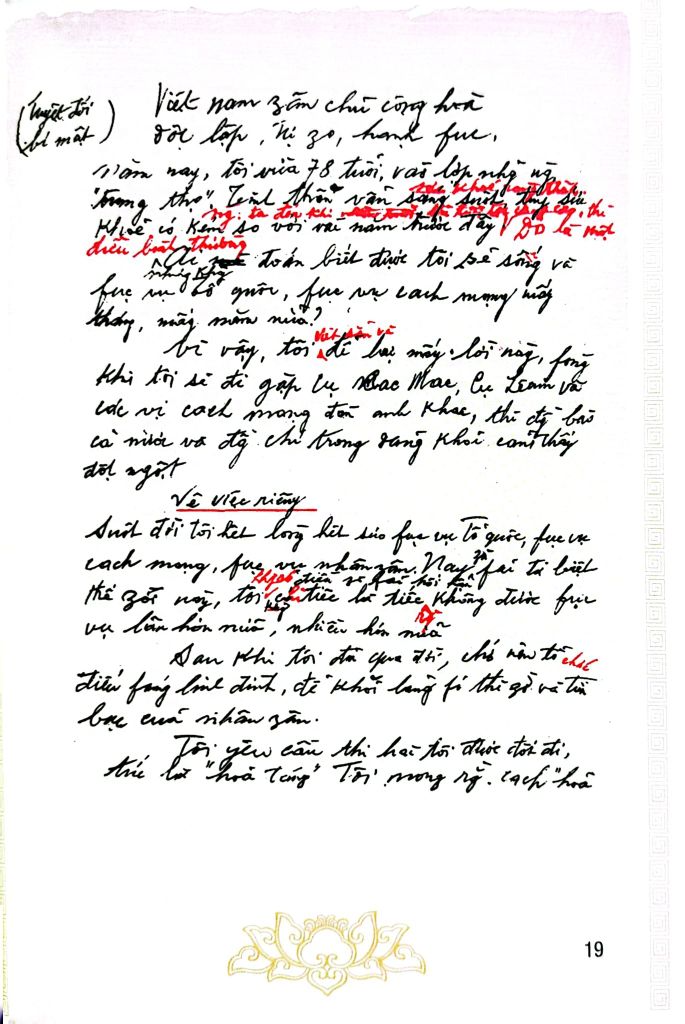 (tuyệt đối
bí mật)
Việt nam zân chủ cộng hoà
độc lập, tự zo, hạnh fuc.
Năm nay, tôi vừa 78 tuổi, vào lớp những ng
"trung thọ". Tinh thần vẫn sáng suốt, tuy sức
khoẻ có kém so với vài năm trước đây
ng. ta đến khi tuổi tác càng cao, thì
Đó là một
điều bình thường
Ai mà đoán biết được tôi sẽ sống và
fục vụ tổ quốc, fục vụ cách mạng mấy
tháng, mấy năm nữa?
viết sẵn và
Vì vậy, tôi để lại mấy lời này, fòng
khi tôi sẽ đi gặp Cụ Các Mác, Cụ Lênin và
các vị cách mạng đàn anh khác, thì đồng bào
cả nước và đồng chí trong đảng khỏi cảm thấy
đột ngột.
Về việc riêng
Suốt đời tôi hết lòng hết sức fục vụ Tổ quốc, fục vụ
cách mạng, fục vụ nhân zân. Nay zù fải từ biệt
thế zới này, tôi không có điều gì fải hối hận
chỉ tiếc là tiếc rằng không được fục
vụ lâu hơn nữa, nhiều hơn nữa
Sau khi tôi đã qua đời, chớ nên tổ chức
điếu fúng linh đình, để khỏi lãng fí thì giờ và tiền
bạc của nhân zân.
Tôi yêu cầu thi hài tôi được đốt đi,
tức là "hoả táng". Tôi mong rằng cách "hoả
19